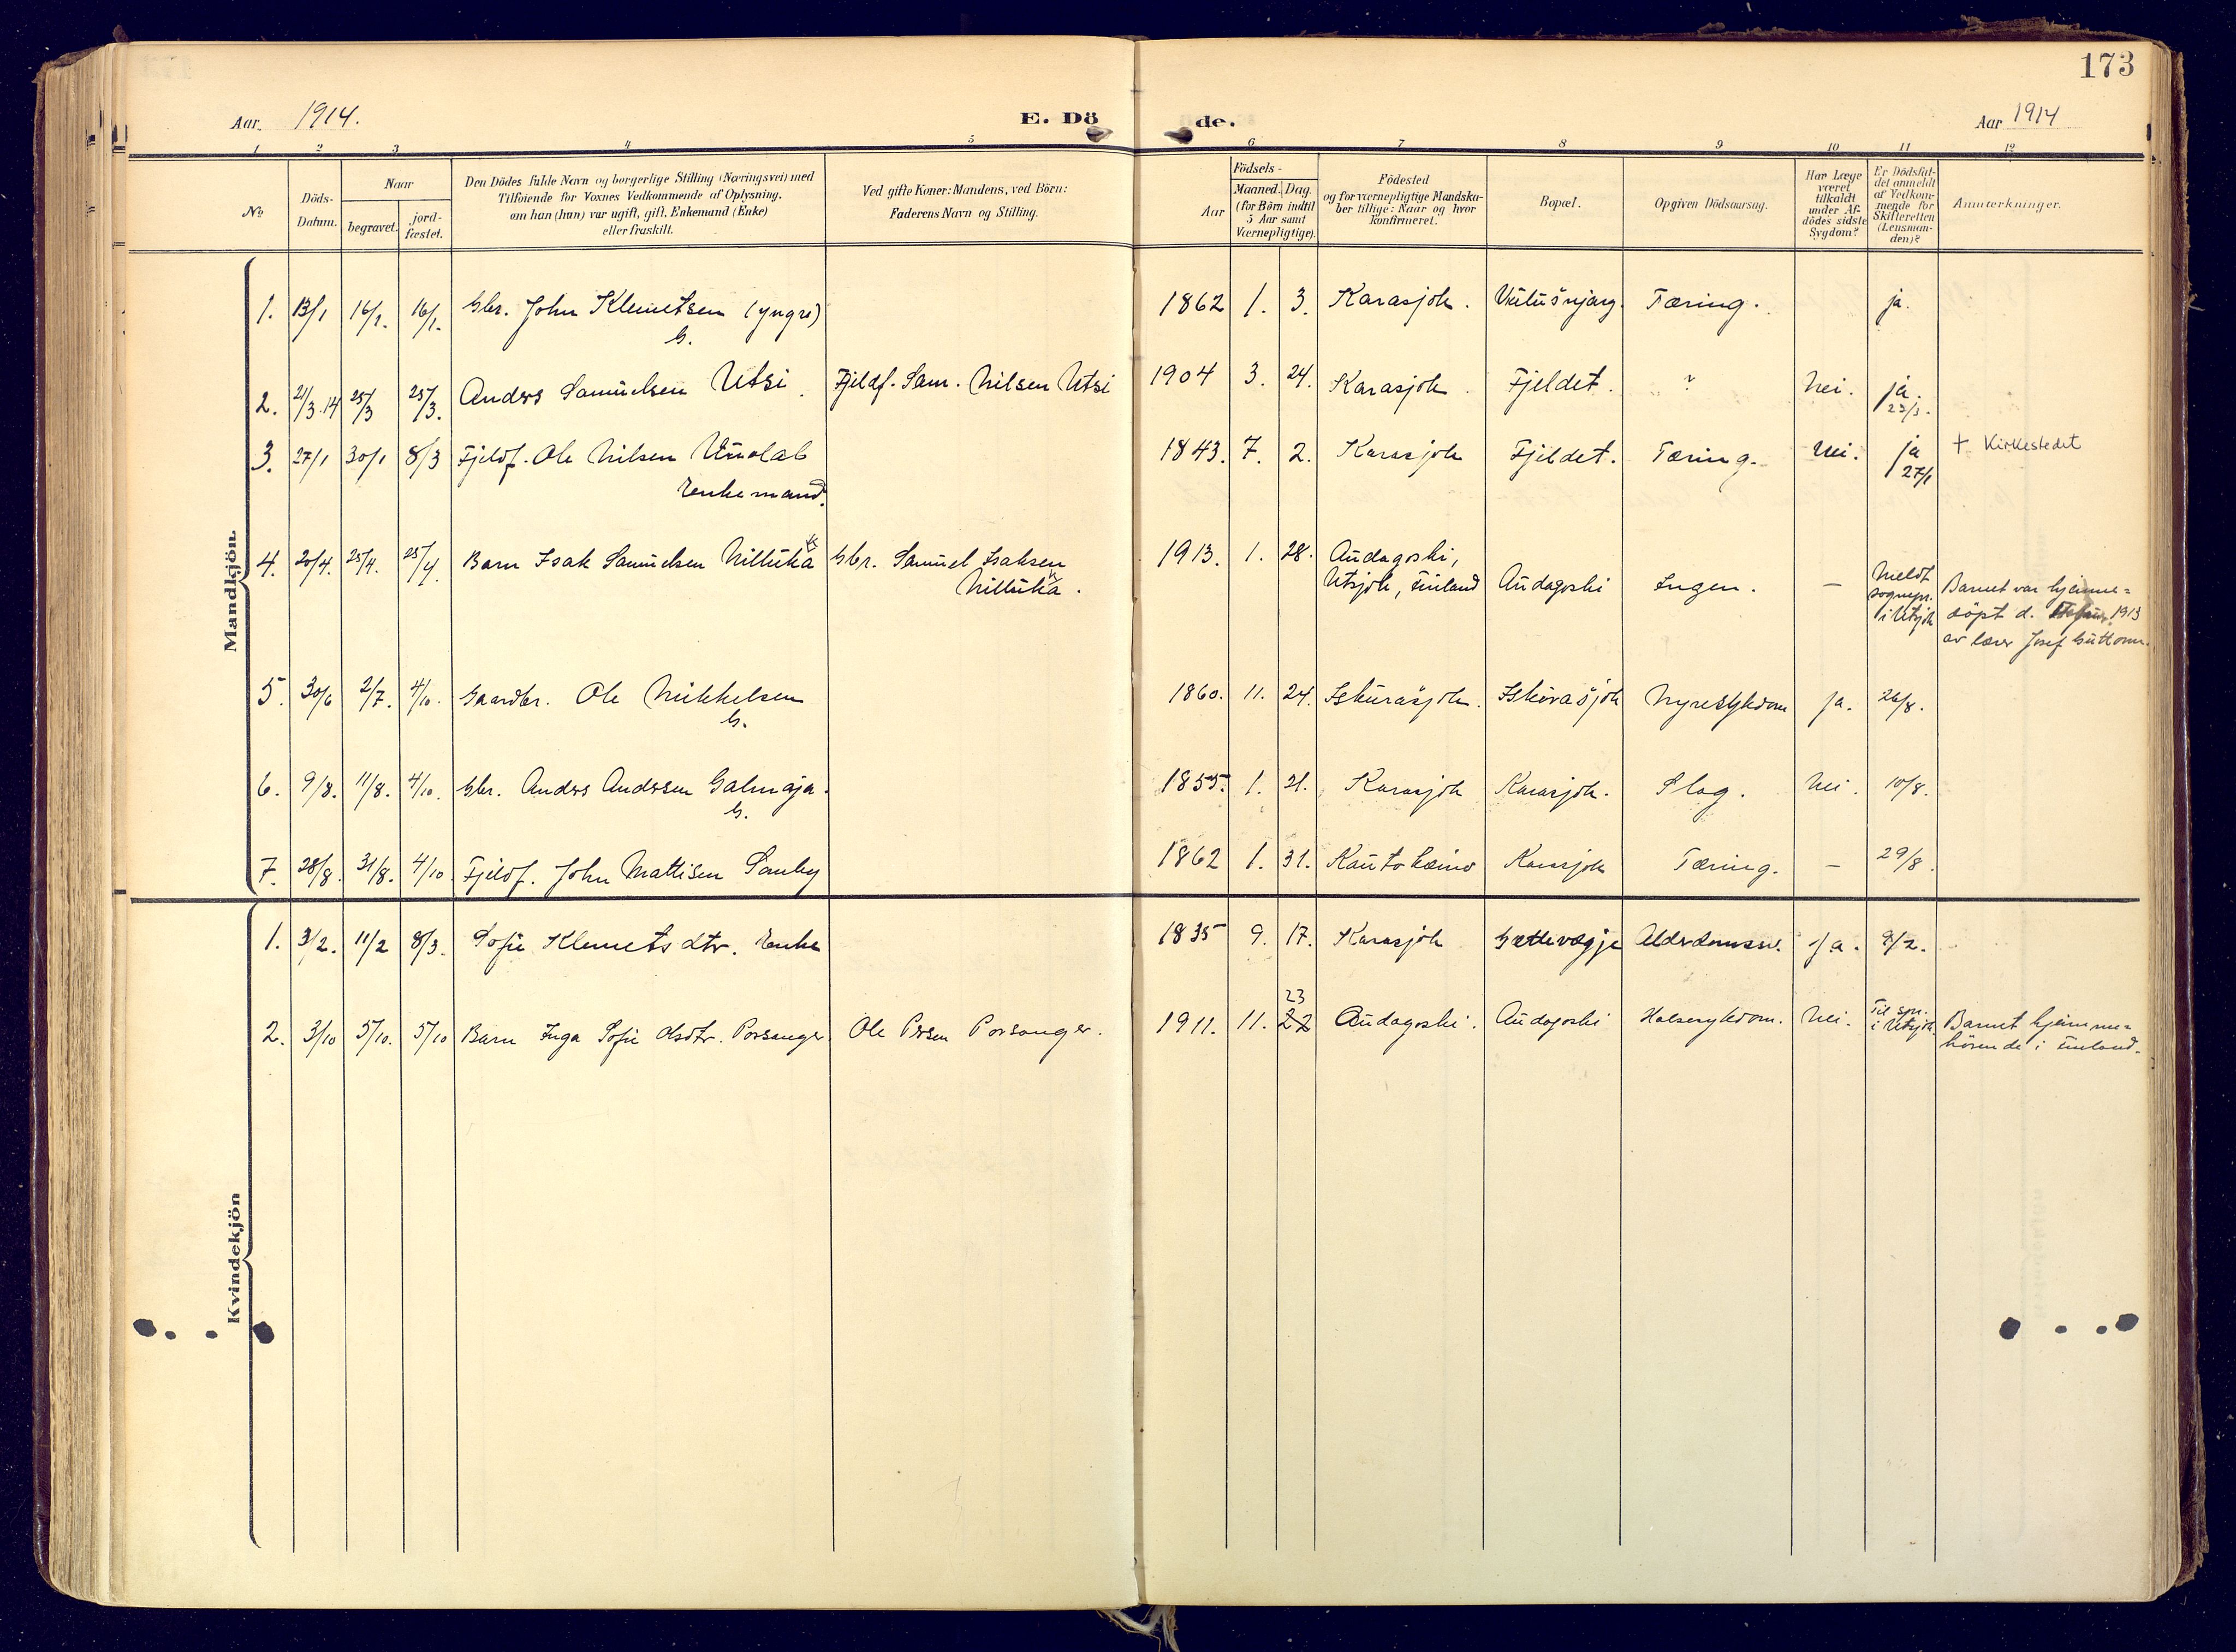 173
Aar. 1914.
E. Dö
de.
Aar 1914
1 2 3 4 5 6 7 8 9 10 11 12
No
Döds-
Datum.
Naar
begravet.
jord-
fæstet.
Den Dödes fulde Navn og borgerlige Stilling (Næringsvei) med
Tilföiende for Voxnes Vedkommende af Oplysning.
om han (hun) var ugift, gift, Enkemand (Enke)
eller fraskilt.
Ved gifte Koner: Mandens, ved Börn:
Faderens Navn og Stilling.
Födsels-
Aar
Maaned. Dag.
(for Börn indtil
5 Aar samt
Værnepligtige).
Födested
og for værnepligtige Mandska-
ber tillige: Naar og hvor
konfirmeret.
Bopæl.
Opgiven Dödsaarsag.
Har Læge
været
tilkaldt
under Af-
dödes sidste
Sygdom?
Er Dödsfal-
det anmeldt
af Vedkom-
mende for
Skifteretten
(Lensman-
den)?
Anmærkninger.
Mandkjön.
1. 13/1 16/1. 16/1. Gbr. John Klemetsen (yngre) 1862 1. 3. Karasjok. Vuitušnjarg. Tæring. ja.
G.
2. 21/3.14 25/3 25/3. Anders Samuelsen Utsi. Fjeldf. Sam. Nilsen Utsi 1904 3. 24. Karasjok. Fjeldet. ? Nei. ja.
23/3.
3. 27/1 30/1 8/3 Fjeldf. Ole Nilsen Unolab 1843. 7. 2. Karasjok Fjeldet. Tæring. Nei. ja + Kirkestedet
Enkemand. 27/1
4. 20/4. 25/4. 25/4. Barn Isak Samuelsen Nilluka Gbr. Samuel Isaksen 1913. 1. 28. Audagoski,
k
Nilluka.
k
Utsjok, Finland Audagoski Ingen. — Meldt
sognepr.
i Utsjok
Barnet var hjemme-
döpt d. 1913
av lærer Josef Guttorm.
5. 30/6 2/7. 4/10. Gaardbr. Ole Mikkelsen 1860. 11. 24. Iskurasjok. Iskurasjok Nyresykdom ja. 26/8.
G.
6. 9/8. 11/8. 4/10. Gbr. Anders Andersen Galmaja. 1855. 1. 21. Karasjok Karasjok. Slag. Nei. 10/8.
G.
7. 28/8. 31/8. 4/10 Fjeldf. John Mattisen Somby 1862 1. 31. Kautokeino Karasjok Tæring. — 29/8.
Kvindekjön
1. 3/2. 11/2 8/3. Sofie Klemetsdtr. Enke 1835 9. 17. Karasjok Gættevægje Alderdomssv. Ja. 9/2.
2. 3/10 5/10. 5/10 Barn Inga Sofie Olsdtr. Porsanger. Ole Persen Porsanger. 1911. 11. 22 Audagoski. Audagoski Halsesykdom. Nei. Til spr.
23
i Utsjok.
Barnet hjemme-
hörende i Finland.